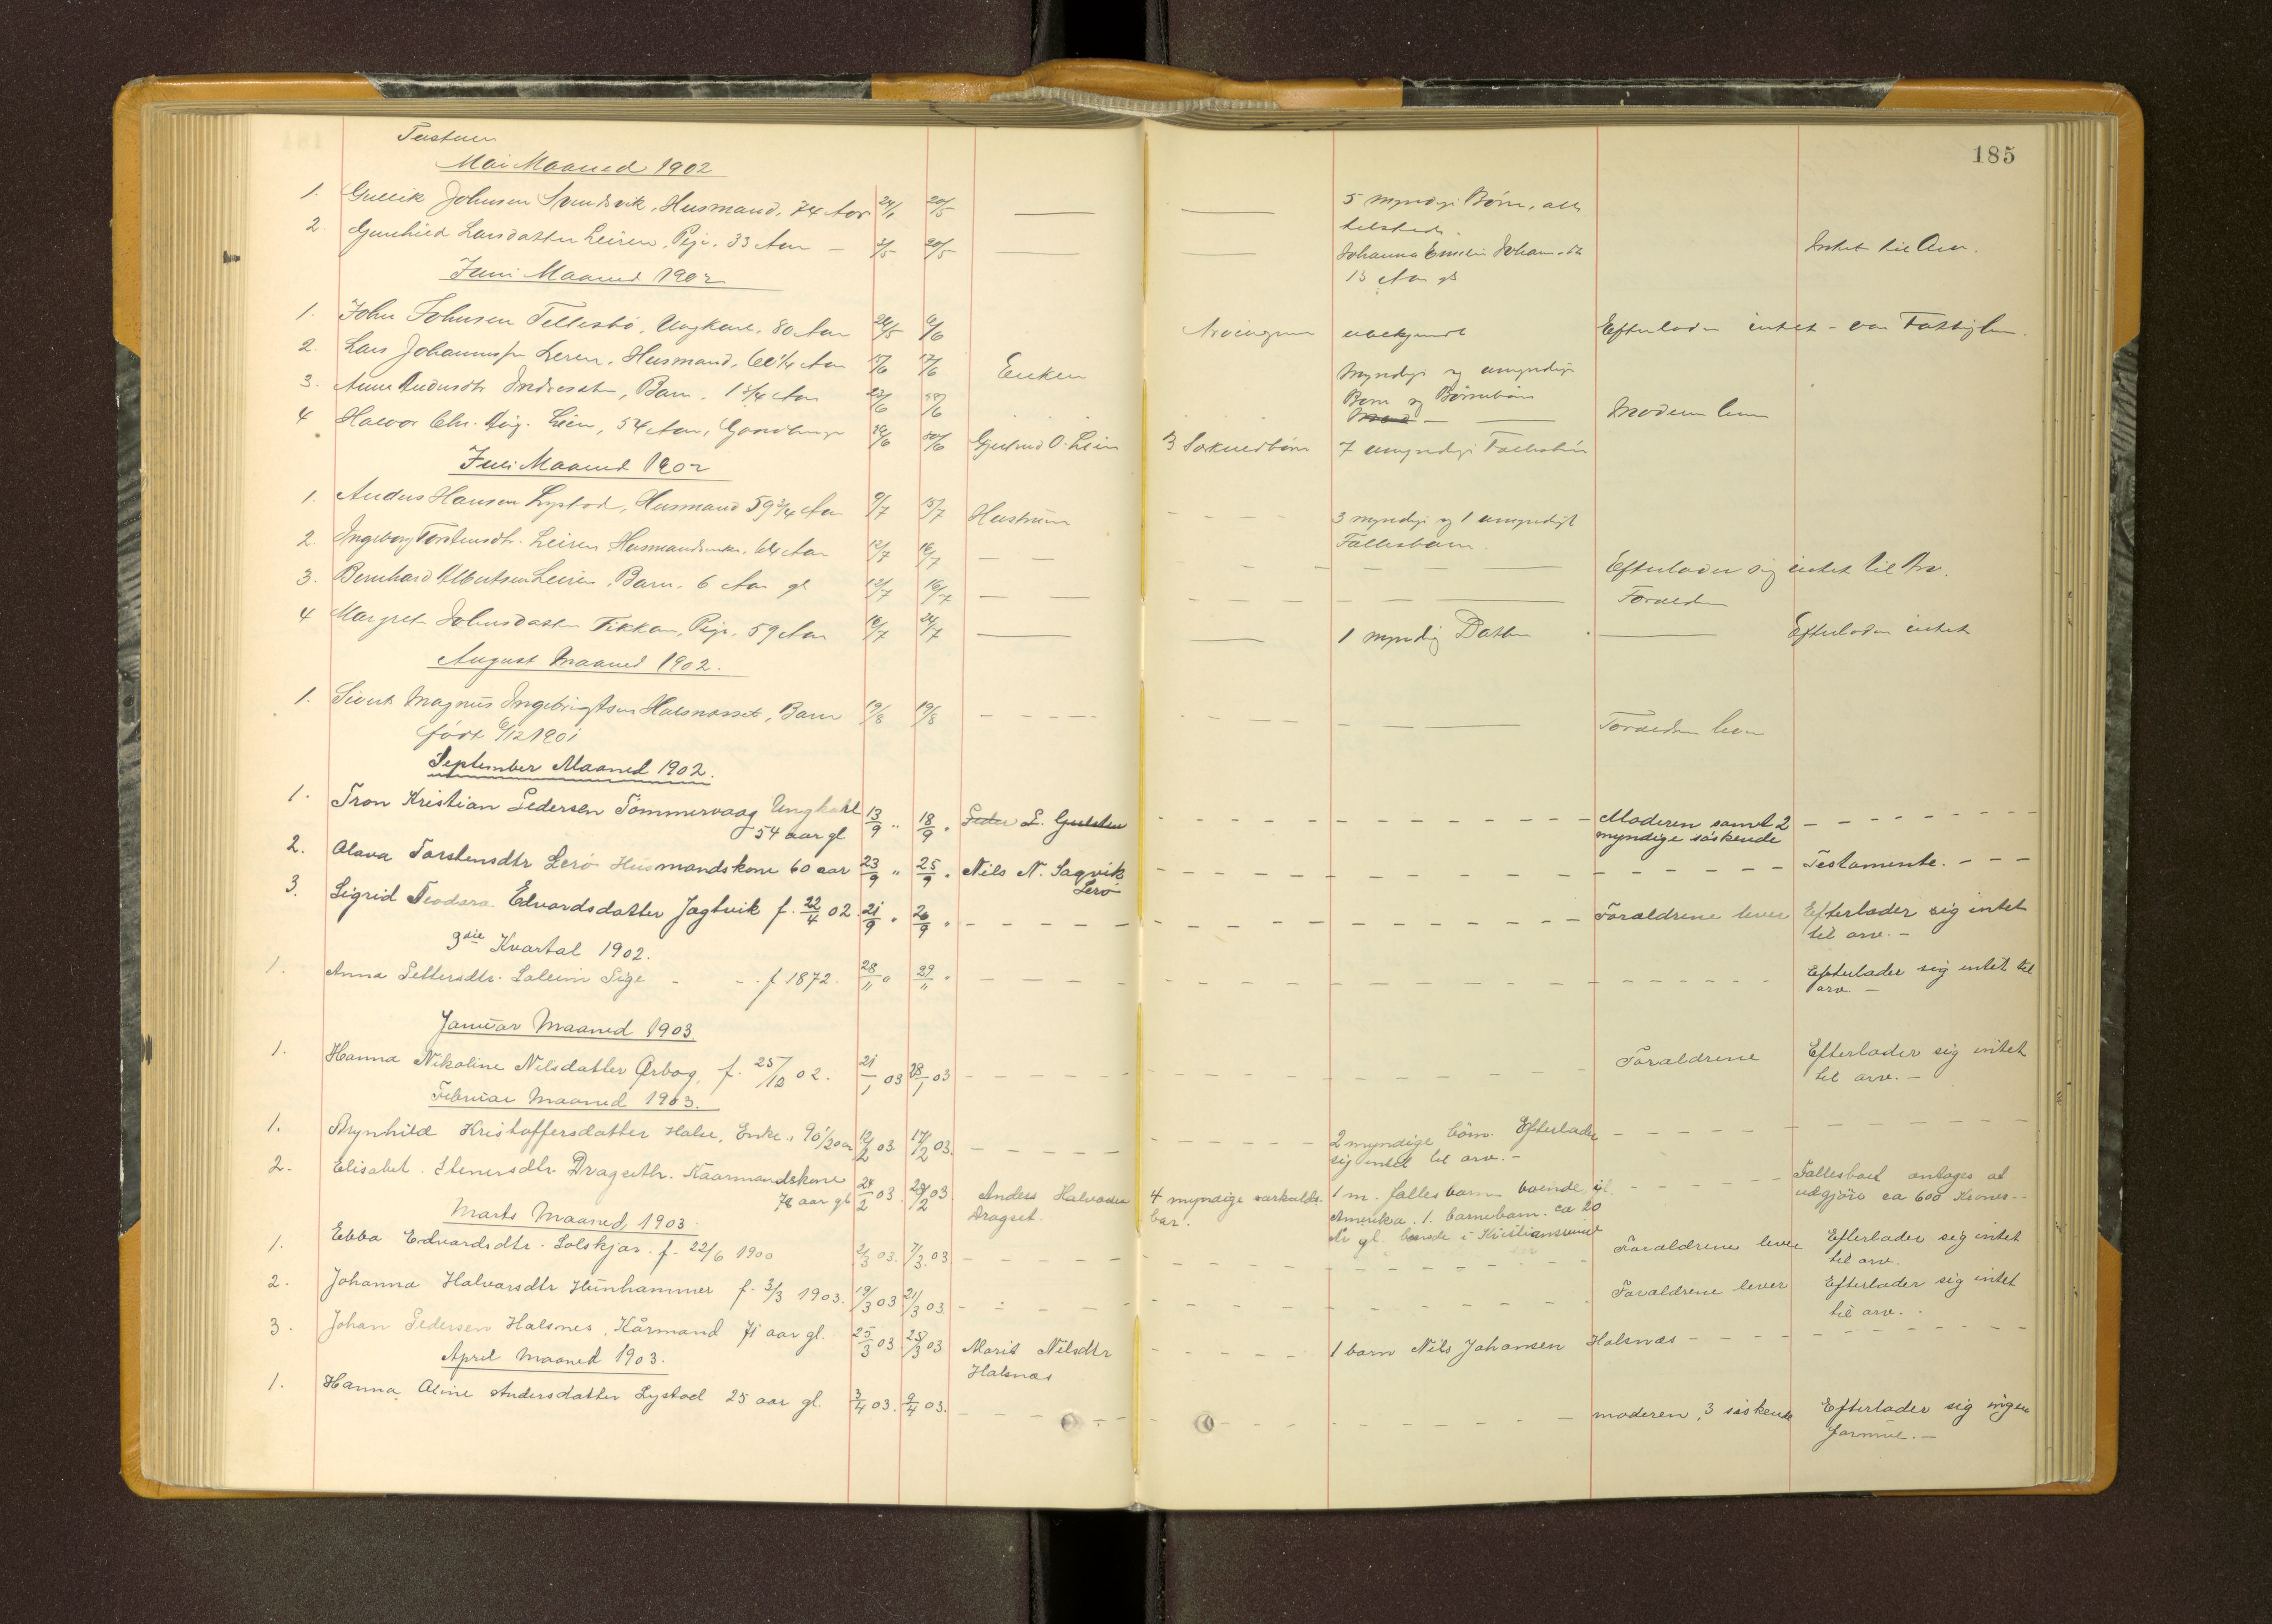 185
Tustuen
Mai Maaned 1902
1. Gullik Johnsen Svendsvik, Husmand, 74 Aar 20/5 5 myndige Børn, alle
tilstede.
2. Gunhild Larsdatter Leiren, Pige, 33 Aar – 3/5 20/5 Johanna Emelie Johansdtr Intet til Arv.
13 Aar gl
Juni Maaned 1902
1. John Johnsen Tellesbø, Ungkarl, 80 Aar 28/5 6/6 ubekjendt Efterlader intet – var Fattiglem.
2. Lars Johannessen Leren, Husmand, 60 1/4 Aar 15/6 17/6 Enken Myndige og umyndige
Børn og Børnebørn
3. Anne Andersdtr Indresæter, Barn, 1 3/4 Aar 23/6 Moderen lever
4 Halvor Chr. Aug. Lein, 54 Aar, Gaardbruger 30/6 Gjertrud O. Lein 3 Særkuldbørn 7 umyndige Fællesbørn
Juli Maaned 1902
1. Anders Hansen Lystad, Husmand 59 3/4 Aar 9/7 15/7 Hustruen – – – 3 myndige og 1 umyndigt
Fællesbarn.
2. Ingeborg Torstensdtr. Leiren Husmandsenke, 64 Aar 12/7 16/7 – – Efterlader sig intet til Arv.
3. Bernhard Albertsen Leiren, Barn, 6 Aar gl 12/7 16/7 – – Forældre
4 Margrete Johnsdatter Tikkan, Pige, 59 Aar 16/7 24/7 1 myndig Datter Efterlader intet
August Maaned 1902.
1. Sivert Magnus Ingebrigtsen Halsnæsset, Barn 19/8 19/8 – – – – Forældrene lever
født 6/12 1901
September Maaned 1902.
1. Tron Kristian Pedersen Tømmervaag Ungkarl 13/9 " 18/9 " Peder L. Gulsten – – – Moderen samt 2 – – –
54 aar gl myndige söskende
2. Olava Torstensdtr Lerö Husmandskone 60 aar 23/9 " 25/9 " Nils N. Sagvik – – – Testamente. – – –
Lerö
3. Sigrid Teodora Edvardsdatter Jagtvik f. 22/4 02. 21/9 " 26/9 " – – – Forældrene lever Efterlader sig intet
til arv. –
3die Kvartal 1902.
1. Anna Pettersdtr. Soleim Pige – – . f 1872. 28/11 " 29/11 " – – – Efterlader sig intet til
arv –
Januar Maaned 1903.
1. Hanna Nikoline Nilsdatter Ørbog, f. 25/12 02. 21/1 03 28/1 03 – – – Forældrene Efterlader sig intet
til arv. –
Februar Maaned 1903.
1. Brynhild Kristoffersdatter Halse, Enke, 90 1/2 aar 12/2 03 17/2 03. – – – 2 myndige börn. Efterlader – – –
sig intet til arv. –
2. Elisabet Stenersdtr. Dragseth. Kaarmandskone 24/2 03. 28/2 03. Anders Halvorsen 4 myndige særkulds- 1 m. fælles barn boende i – – – Fællesboet antages at
78 aar gl Dragset. bar. Amerika. 1. barnebarn. ca 20 udgjöre ca 600 Kroner –
år gl. boende i Kristianssund
Marts Maaned 1903.
1. Ebba Edvardsdtr. Solskjær. f. 22/6 1900 2/3 03. 7/3. 03 – – – Forældrene lever Efterlader sig intet
til arv.
2. Johanna Halvorsdtr Hünhammer f. 3/3 1903. 19/3 03 21/3 03. – – – Forældrene lever Efterlader sig intet
til arv.
3. Johan Pedersen Halsnes, Kårmand 71 aar gl. 25/3 03 25/3 03 Marit Nilsdtr – – – 1 barn Nils Johansen Halsnæs – – –
Halsnæs
April Maaned 1903.
1. Hanna Oline Andersdatter Lystad 25 aar gl. 3/4 03. 9/4 03. – – – moderen, 3 söskende Efterlader sig ingen
formue. –